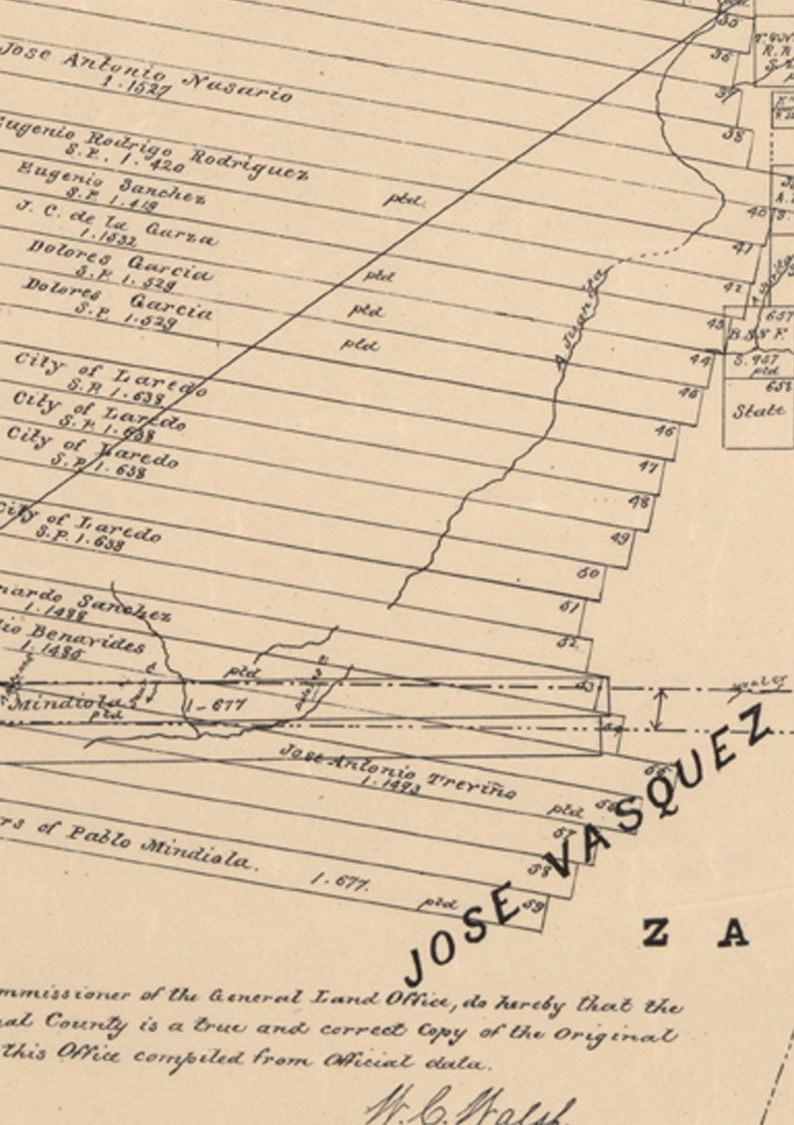 35
36
37
38
Jose Antonio Nasario
1.1527
Eugenio Rodrigo Rodriguez
S.P. 1.420
Eugenio Sanchez
S.P. 1.419
ptd.
40
J. C. de la Garza
1.1532
41
Dolores Garcia
S.P. 1.529
ptd
42
Dolores Garcia
S.P. 1.529
ptd
43
657
B.S & F.
ptd
44
S. 957
ptd
658
State
A Juanita
City of Laredo
S.P. 1.638
45
City of Laredo
S.P. 1.638
46
City of Laredo
S.P. 1.638
47
48
City of Laredo
S.P. 1.638
49
50
51
nardo Sanchez
1.1488
52
io Benavides
1.1485
ptd
53
Mindiola
ptd
1-677
54
Jose Antonio Treviño
1.1493
ptd
55
56
57
58
rs of Pablo Mindiola.
1.677.
ptd
59
JOSE VASQUEZ
Z A
mmissioner of the General Land Office, do hereby that the
al County is a true and correct Copy of the Original
this Office compiled from Official data.
W. C. Walsh